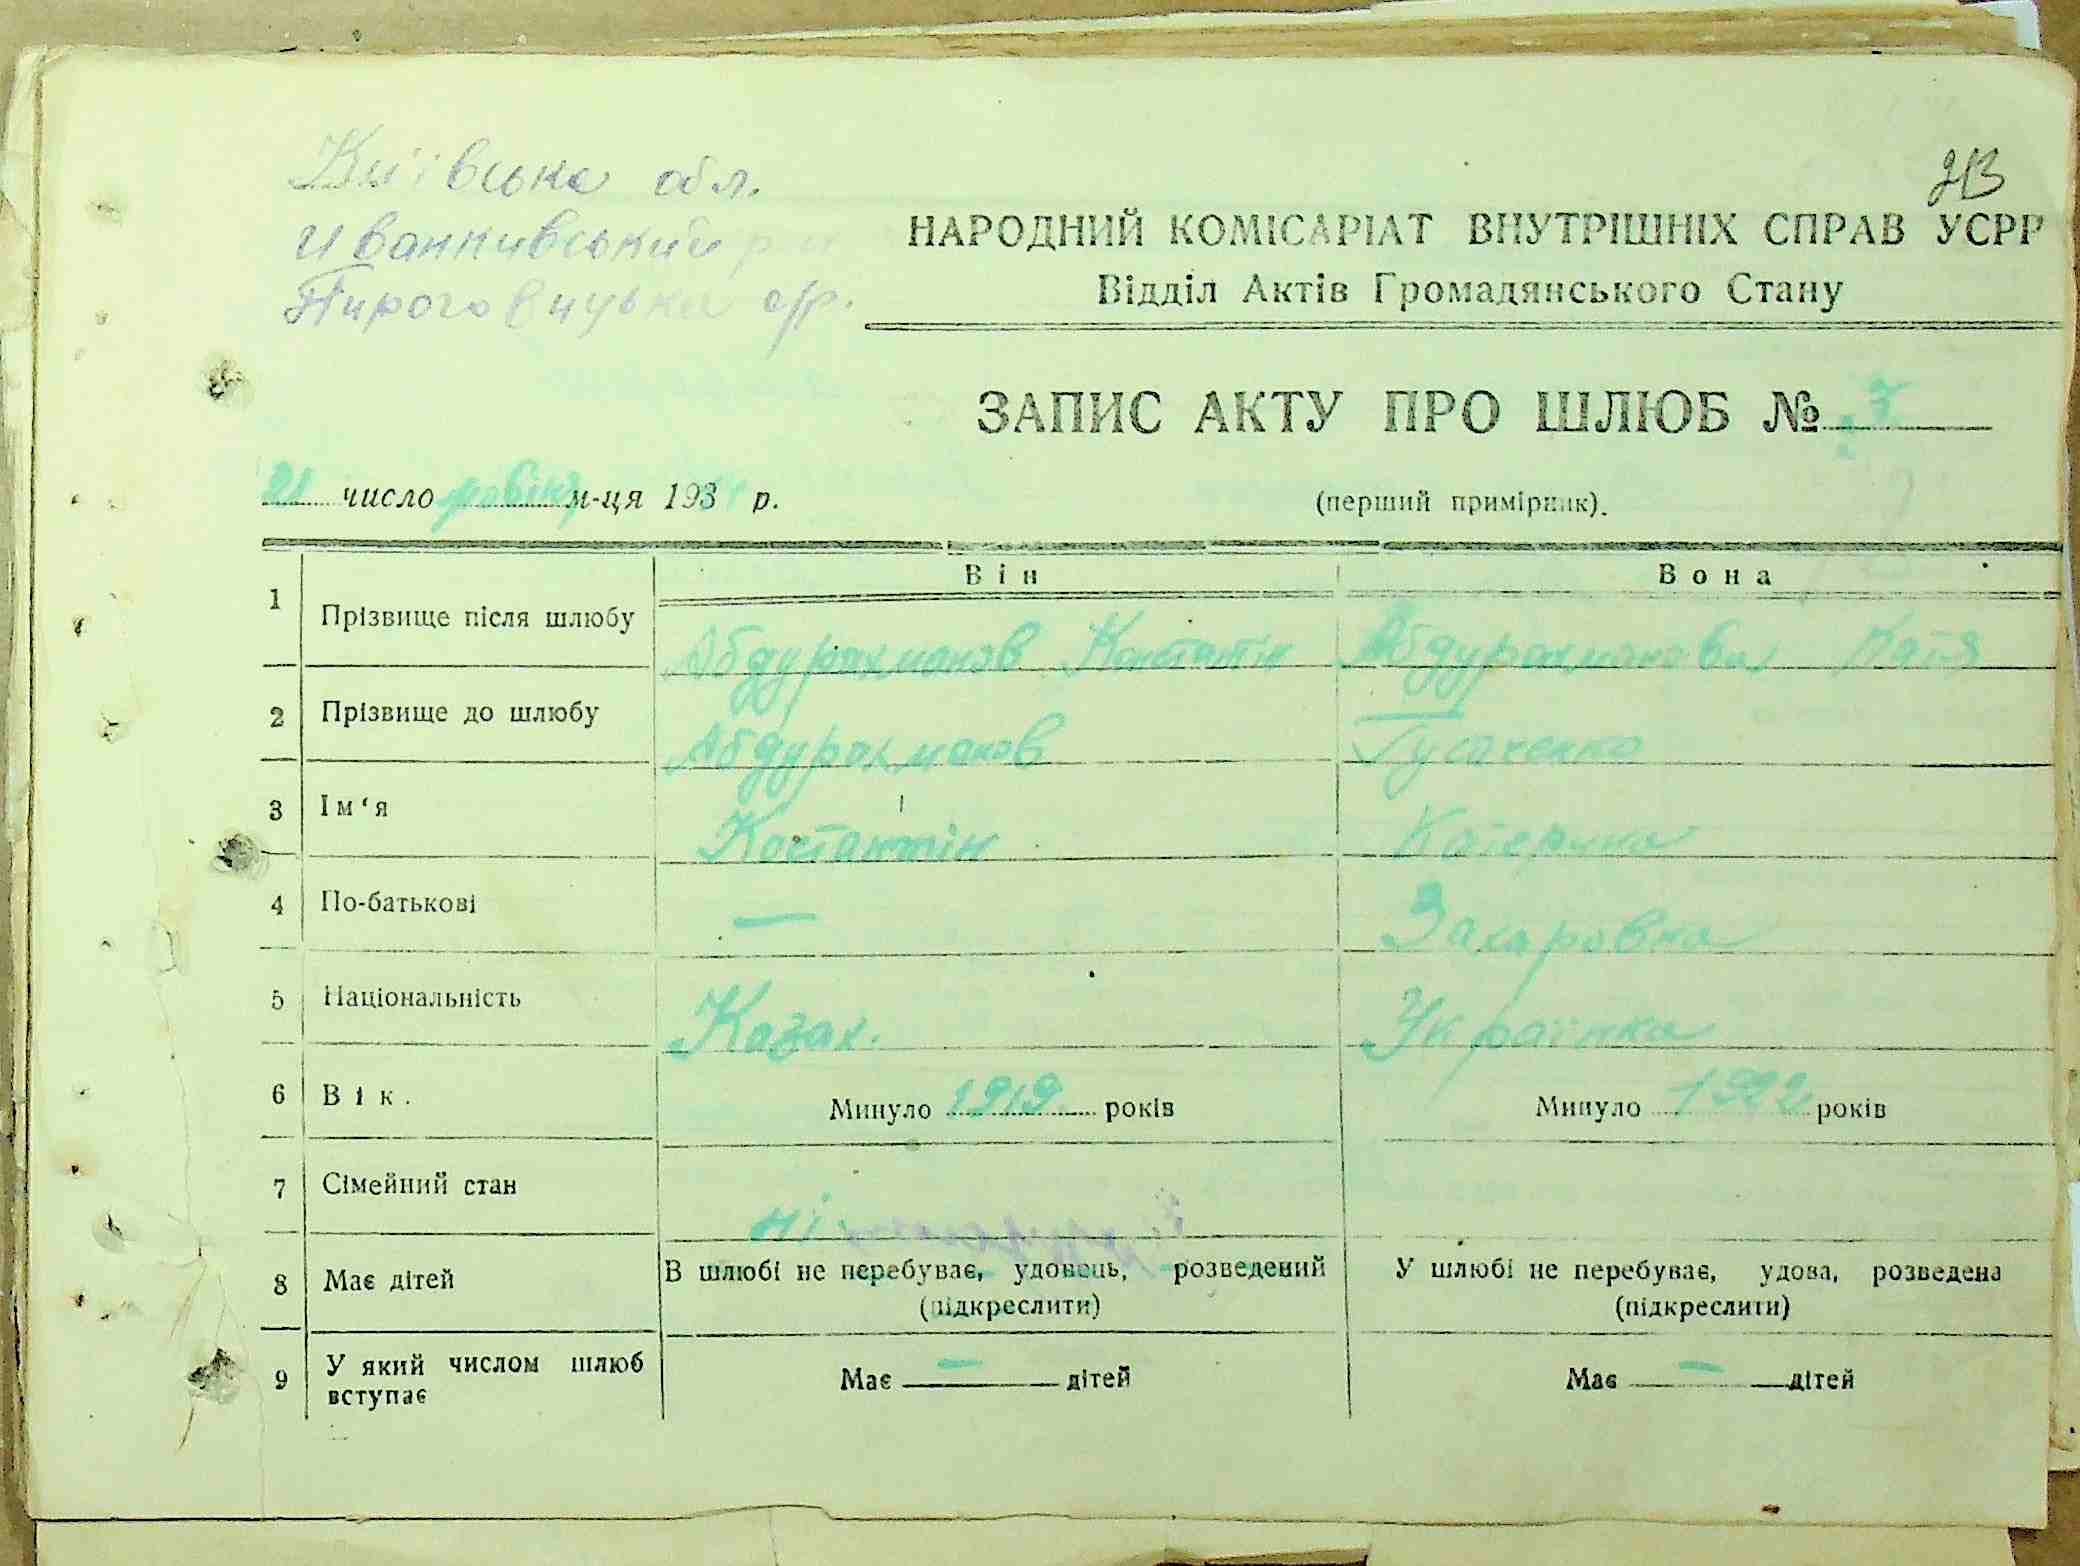 Київська обл.
Иванкивський
Пироговицька с/р.
213
НАРОДНИЙ КОМІСАРІАТ ВНУТРІШНІХ СПРАВ УСРР
Відділ Актів Громадянського Стану
ЗАПИС АКТУ ПРО ШЛЮБ № 7
21 число м-ця 193 р.
(перший примірник).
Він Вона
1 Прізвище після шлюбу Абдурахманов Абдурахманова Катя
2 Прізвище до шлюбу Абдурахманов
3 Ім‘я Костантін Катерина
4 По-батькові — Захаровна
5 Національність Казах. Українка
6 Вік. Минуло 1919 років Минуло 1922 років
7 Сімейний стан ні.
8 Має дітей В шлюбі не перебуває, удовець, розведений У шлюбі не перебуває, удова, розведена
(підкреслити) (підкреслити)
9 У який числом шлюб вступає Має — дітей Має — дітей